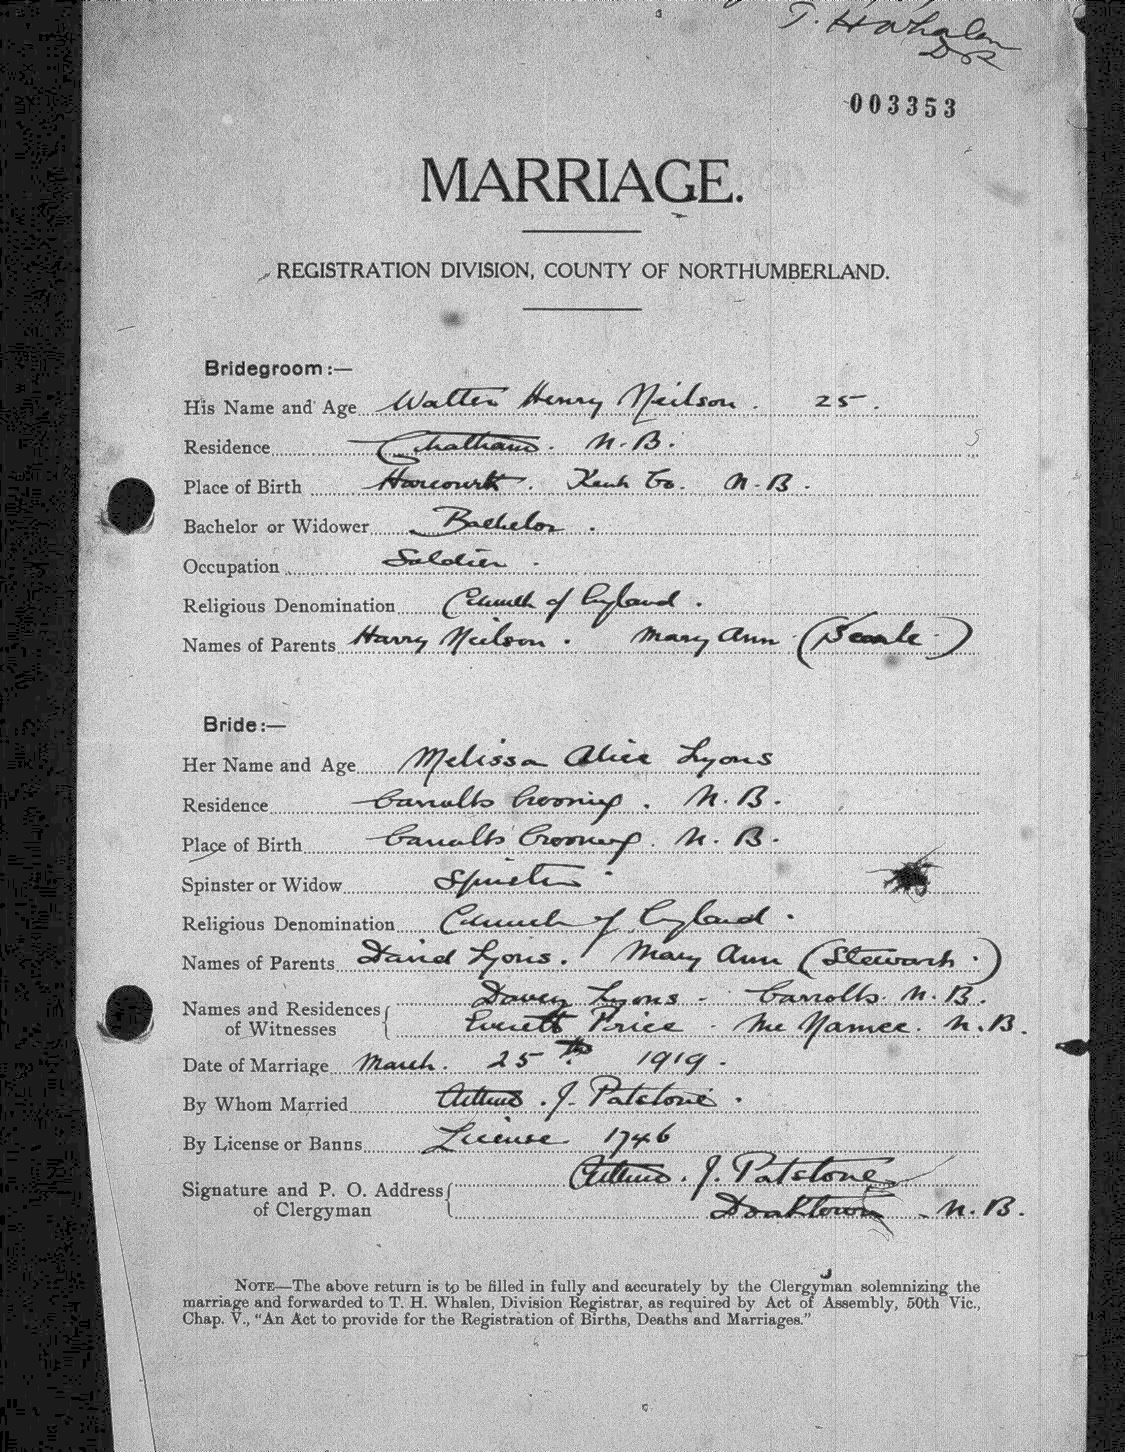 T. H Whalen
DR
003353
MARRIAGE.
REGISTRATION DIVISION, COUNTY OF NORTHUMBERLAND.
Bridegroom:—
His Name and Age Walter Henry Neilson. 25.
Residence Chatham. N.B.
Place of Birth Harcourt. Kent Co. N.B.
Bachelor or Widower Bachelor.
Occupation Soldier.
Religious Denomination Church of England.
Names of Parents Harry Neilson. Mary Ann
Bride:—
Her Name and Age Melissa Alice Lyons
Residence Carrolls Crossing. N.B.
Place of Birth Carrolls Crossing. N.B.
Spinster or Widow Spinster.
Religious Denomination Church of England.
Names of Parents David Lyons. Mary Ann (Stewart.)
Names and Residences of Witnesses Davey Lyons - Carrolls. N.B.
Everett Price. Mc Namee. N.B.
Date of Marriage March. 25th 1919.
By Whom Married Arthur. J. Patstone.
By License or Banns License 1746
Signature and P. O. Address of Clergyman Arthur. J. Patstone
Doaktown - N.B.
NOTE—The above return is to be filled in fully and accurately by the Clergyman solemnizing the
marriage and forwarded to T. H. Whalen, Division Registrar, as required by Act of Assembly, 50th Vic.,
Chap. V., "An Act to provide for the Registration of Births, Deaths and Marriages."